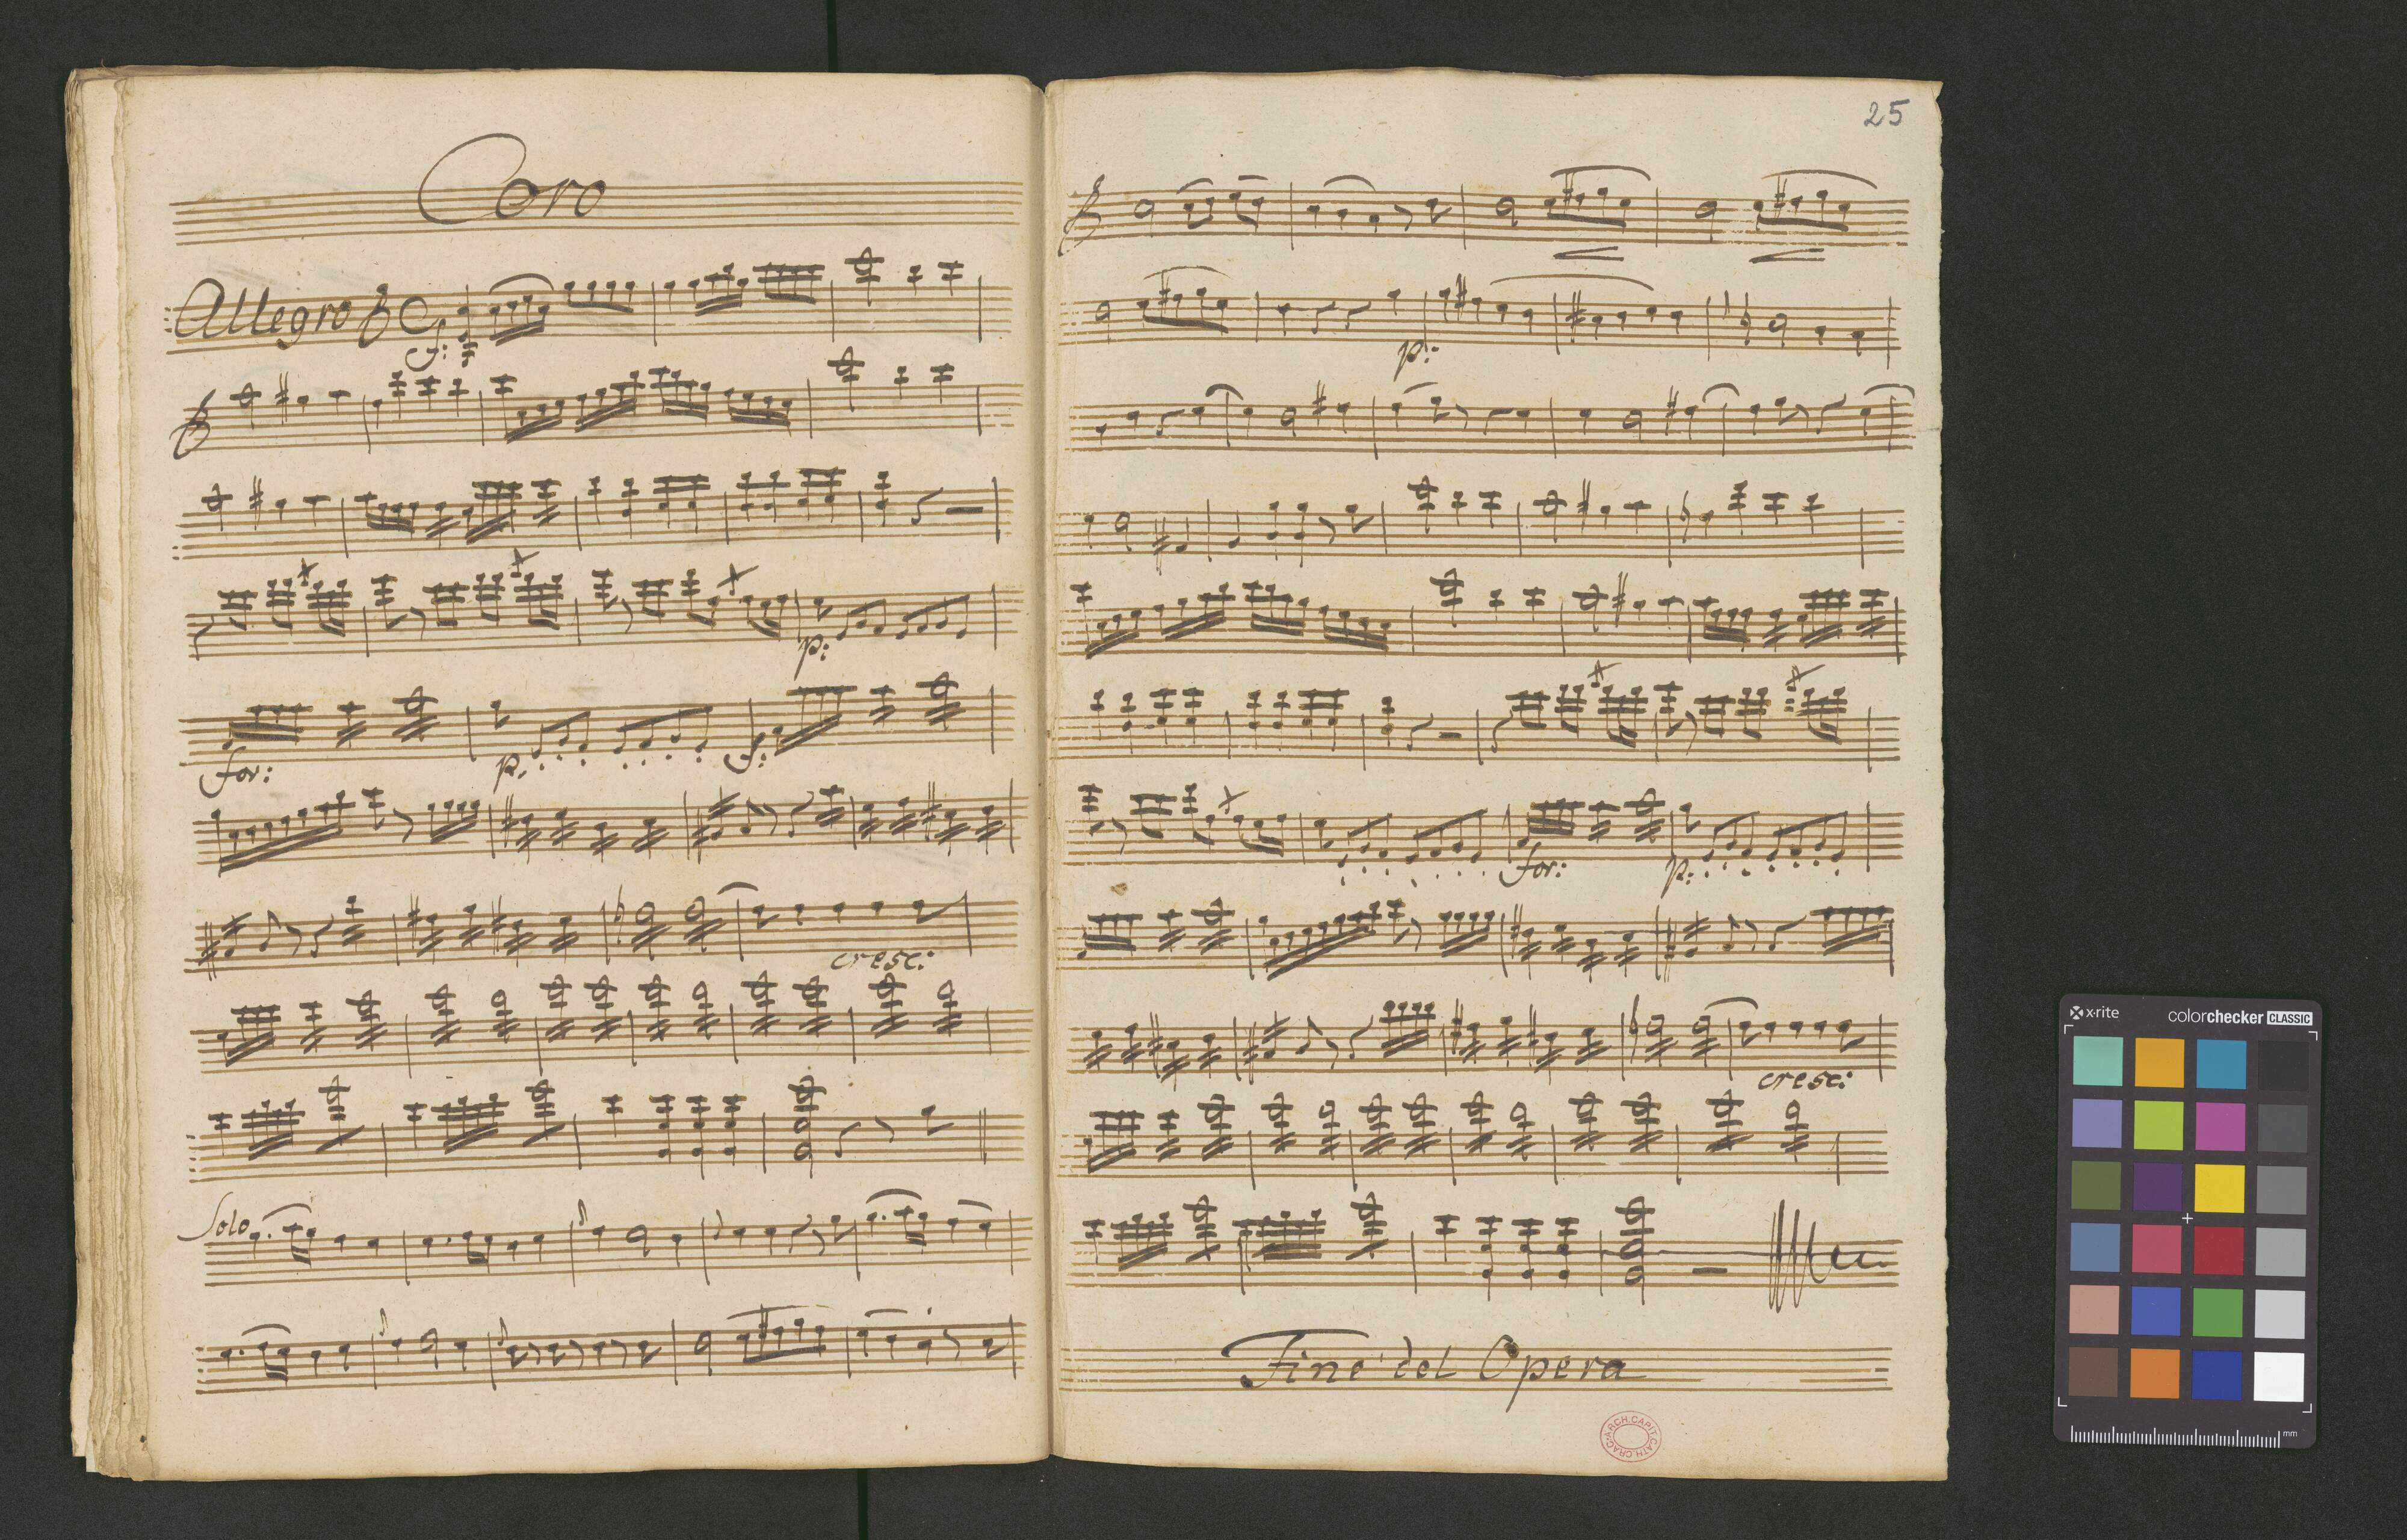 Coro
Allegro
f:
p:
for:
p.
f:
cresc:
Solo
25
p:
for:
p:
cresc:
Fine del Opera
ARCH.CAPIT.CATH.CRAC.
x-rite
colorchecker CLASSIC
mm